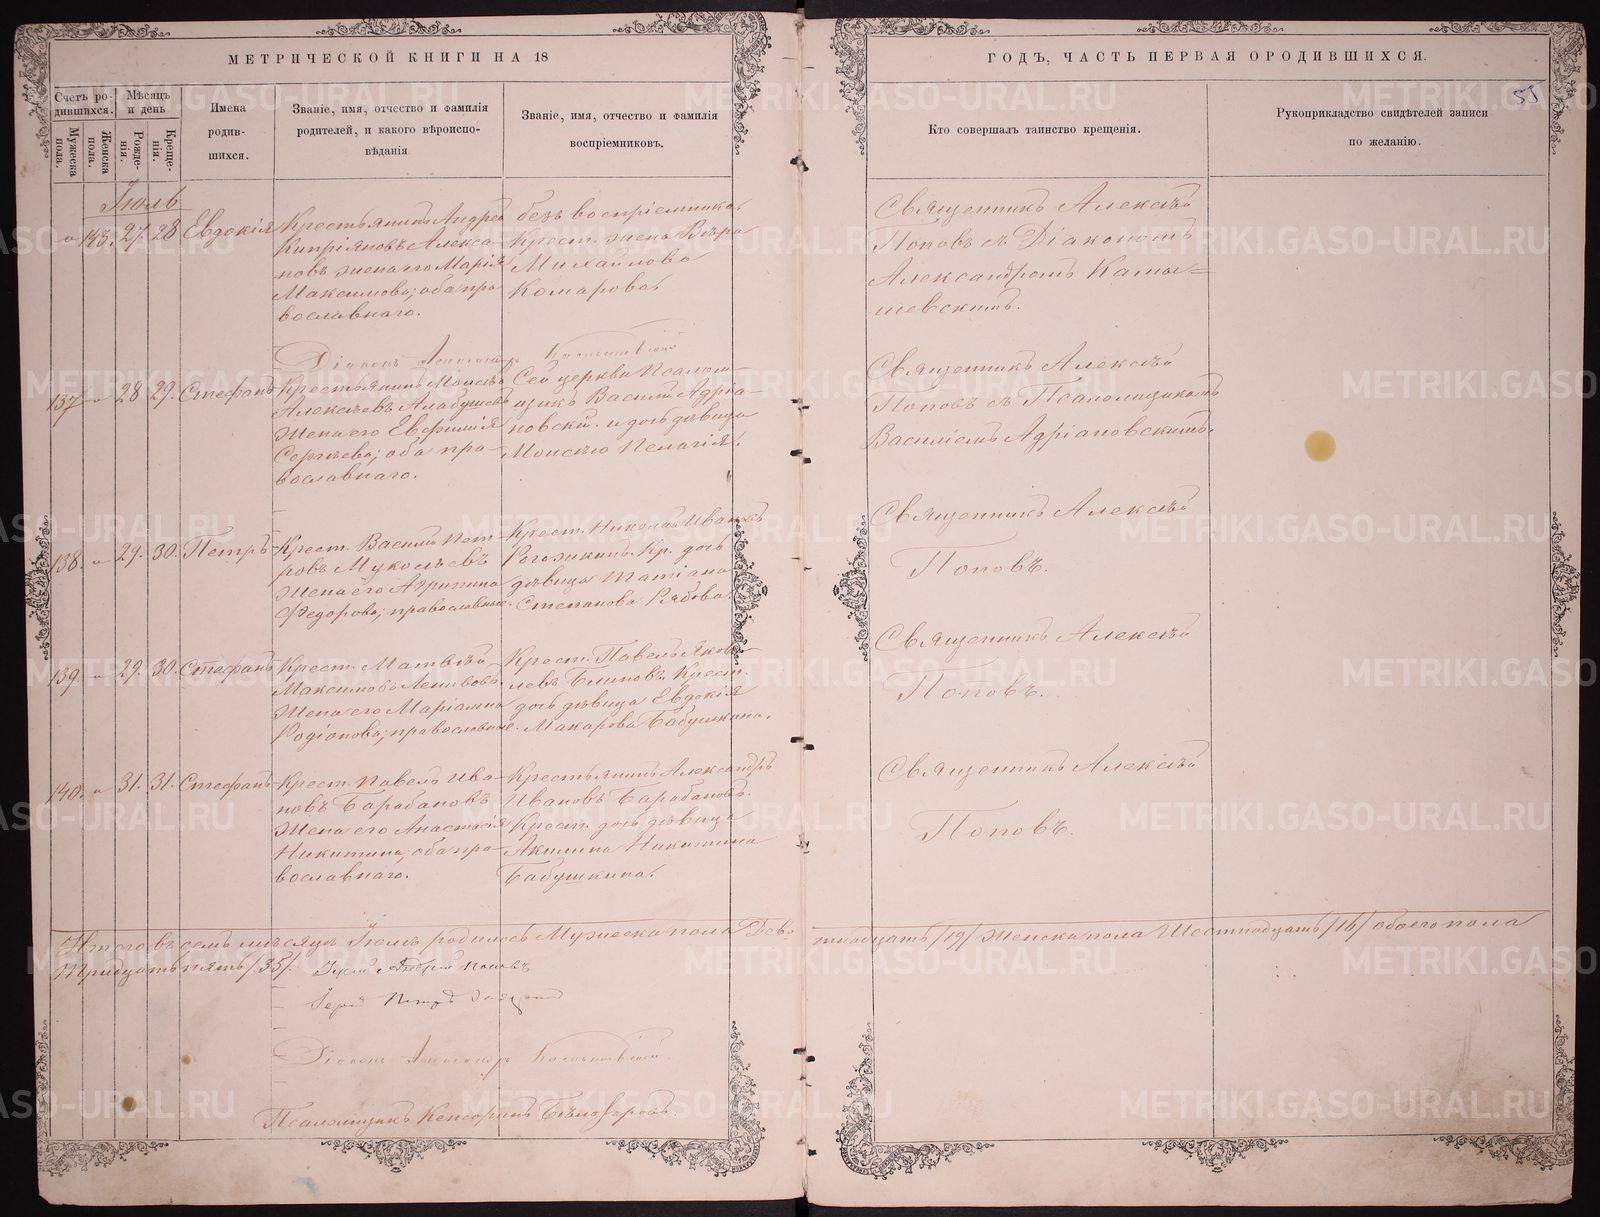 МЕТРИЧЕСКОЙ КНИГИ НА 18
ГОДЪ, ЧАСТЬ ПЕРВАЯ О РОДИВШИХСЯ.
55
Счетъ ро-
дившихся.
Мужеска пола.
Женска пола.
Мѣсяцъ
и день
Рожде-
нія.
Креще-
нія.
Имена
родив-
шихся.
Званіе, имя, отчество и фамилія
родителей, и какого вѣроиспо-
вѣданія
Званіе, имя, отчество и фамилія
воспріемниковъ.
Кто совершалъ таинство крещенія.
Рукоприкладство свидѣтелей записи
по желанію.
Іюль
27. 28 Евдокія
Крестьянинъ Андрей
Кипріяновъ Алекса-
новъ жена его Марія
Максимова; оба пра-
вославнаго.
безъ воспріемника
Крест. жена Вѣра
Михайлова
Комарова.
Священникъ Алексѣй
Поповъ съ Діакономъ
Александромъ Камы-
шевскимъ.
Діаконъ
137 28 29. Стефанъ
Крестьянинъ Моисей
Алексѣевъ Алабушевъ
жена его Евфимія
Сергѣева; оба пра-
вославнаго.
Сей церкви Псалом-
щикъ Василій Адріа-
новскій. и дочь дѣвица
Пелагія.
Священникъ Алексѣй
Поповъ съ Псаломщикомъ
Василіемъ Адріановскимъ.
138. 29. 30. Петръ
Крест. Василій Пет-
ровъ
Жена его Агрипина
Федорова; православные.
Крест. Николай Ивановъ
Рогожкинъ. Кр. дочь
дѣвица Татіана
Степанова Рябова.
Священникъ Алексѣй
Поповъ.
139. 29. 30. Стефанъ
Крест. Матвѣй
Максимовъ Ленивовъ
Жена его Маріамна
Родіонова; православные.
Крест. Павелъ Яков-
левъ Блиновъ. Крест.
дочь дѣвица Евдокія
Макарова Бабушкина.
Священникъ Алексѣй
Поповъ.
140. 31. 31. Стефанъ
Крест. Павелъ Ива-
новъ Барабановъ
Жена его Анастасія
Никитина; оба пра-
вославнаго.
Крестьянинъ Александръ
Ивановъ Барабановъ.
Крест. дочь дѣвица
Акилина Никитина
Бабушкина.
Священникъ Алексѣй
Поповъ.
Итого въ семъ мѣсяцѣ Іюлѣ родилось Мужеска пола Девят-
надцать /19/ Женска пола Шестнадцать /16/ обоего пола
Тридцать пять /35/.
Іерей Поповъ
Іерей Петръ
Діаконъ
Псаломщикъ
METRIKI.GASO-URAL.RU